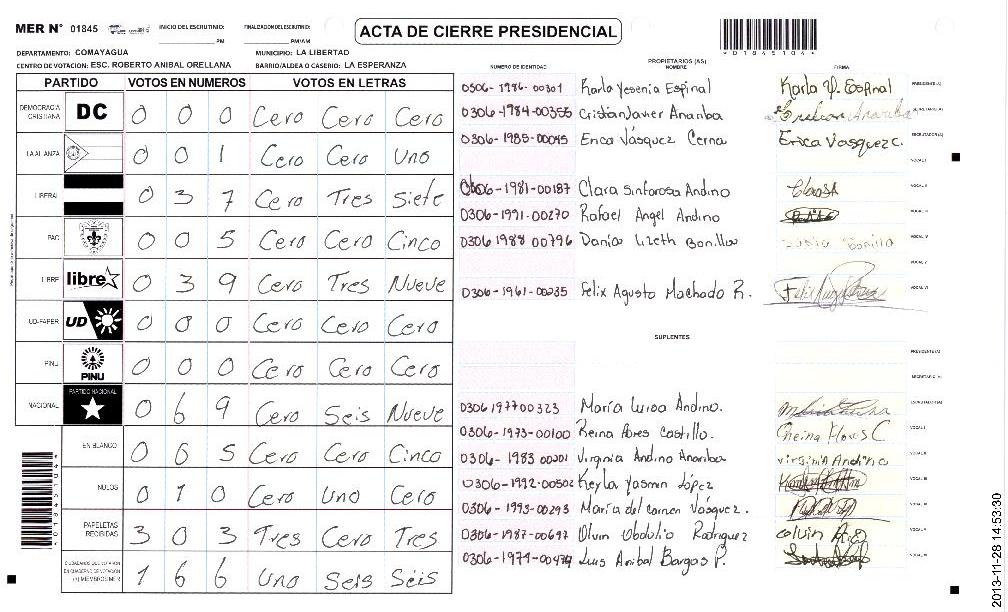 MER N° 01845 INICIO DEL ESCRUTINIO: PM FINALIZACION DEL ESCRUTINIO: PM/AM ACTA DE CIERRE PRESIDENCIAL
DEPARTAMENTO: COMAYAGUA MUNICIPIO: LA LIBERTAD
CENTRO DE VOTACION: ESC. ROBERTO ANIBAL ORELLANA BARRIO/ALDEA O CASERIO: LA ESPERANZA
PARTIDO VOTOS EN NUMEROS VOTOS EN LETRAS
DEMOCRACIA CRISTIANA DC 0 0 0 Cero Cero Cero
LA ALIANZA 0 0 1 Cero Cero Uno
LIBERAL 0 3 7 Cero Tres Siete
PAC 0 0 5 Cero Cero Cinco
LIBRE libre 0 3 9 Cero Tres Nueve
UD-FAPER UD 0 0 0 Cero Cero Cero
PINU PINU 0 0 0 Cero Cero Cero
NACIONAL PARTIDO NACIONAL 0 6 9 Cero Seis Nueve
EN BLANCO 0 0 5 Cero Cero Cinco
NULOS 0 1 0 Cero Uno Cero
PAPELETAS RECIBIDAS 3 0 3 Tres Cero Tres
CIUDADANOS QUE VOTARON EN CUADERNO DE VOTACION (+) MIEMBROS MER 1 6 6 Uno Seis Seis
PROPIETARIOS (AS)
NUMERO DE IDENTIDAD NOMBRE FIRMA
0506-1986-00301 Karla Yesenia Espinal Karla Y. Espinal PRESIDENTE(A)
0306-1984-00355 Cristian Javier Anariba SECRETARIO(A)
0306-1985-00045 Erica Vásquez Cerna Erica Vasquez C. ESCRUTADOR(A)
VOCAL I
0306-1981-00187 Clara Sinforosa Andino VOCAL II
0306-1991-00270 Rafael Angel Andino VOCAL III
0306 1988 00796 Dania Lizeth Bonilla Bonilla VOCAL IV
VOCAL V
0306-1961-00235 Felix Agusto Machado R. VOCAL VI
SUPLENTES
PRESIDENTE(A)
SECRETARIO(A)
0306 1977 00323 María Luisa Andino. ESCRUTADOR(A)
0306-1973-00100 Reina Flores Castillo. VOCAL I
0306-1983 00201 Virginia Andino Anariba virginia Andino VOCAL II
0306-1992-00502 Keyla Yasmin López VOCAL III
0306-1993-00293 María del carmen Vásquez. VOCAL IV
0306-1987-00697 Olvin Obdulio Rodriguez VOCAL V
0306-1974-00474 Luis Anibal Bargas P. VOCAL VI
2013-11-28 14:53:30